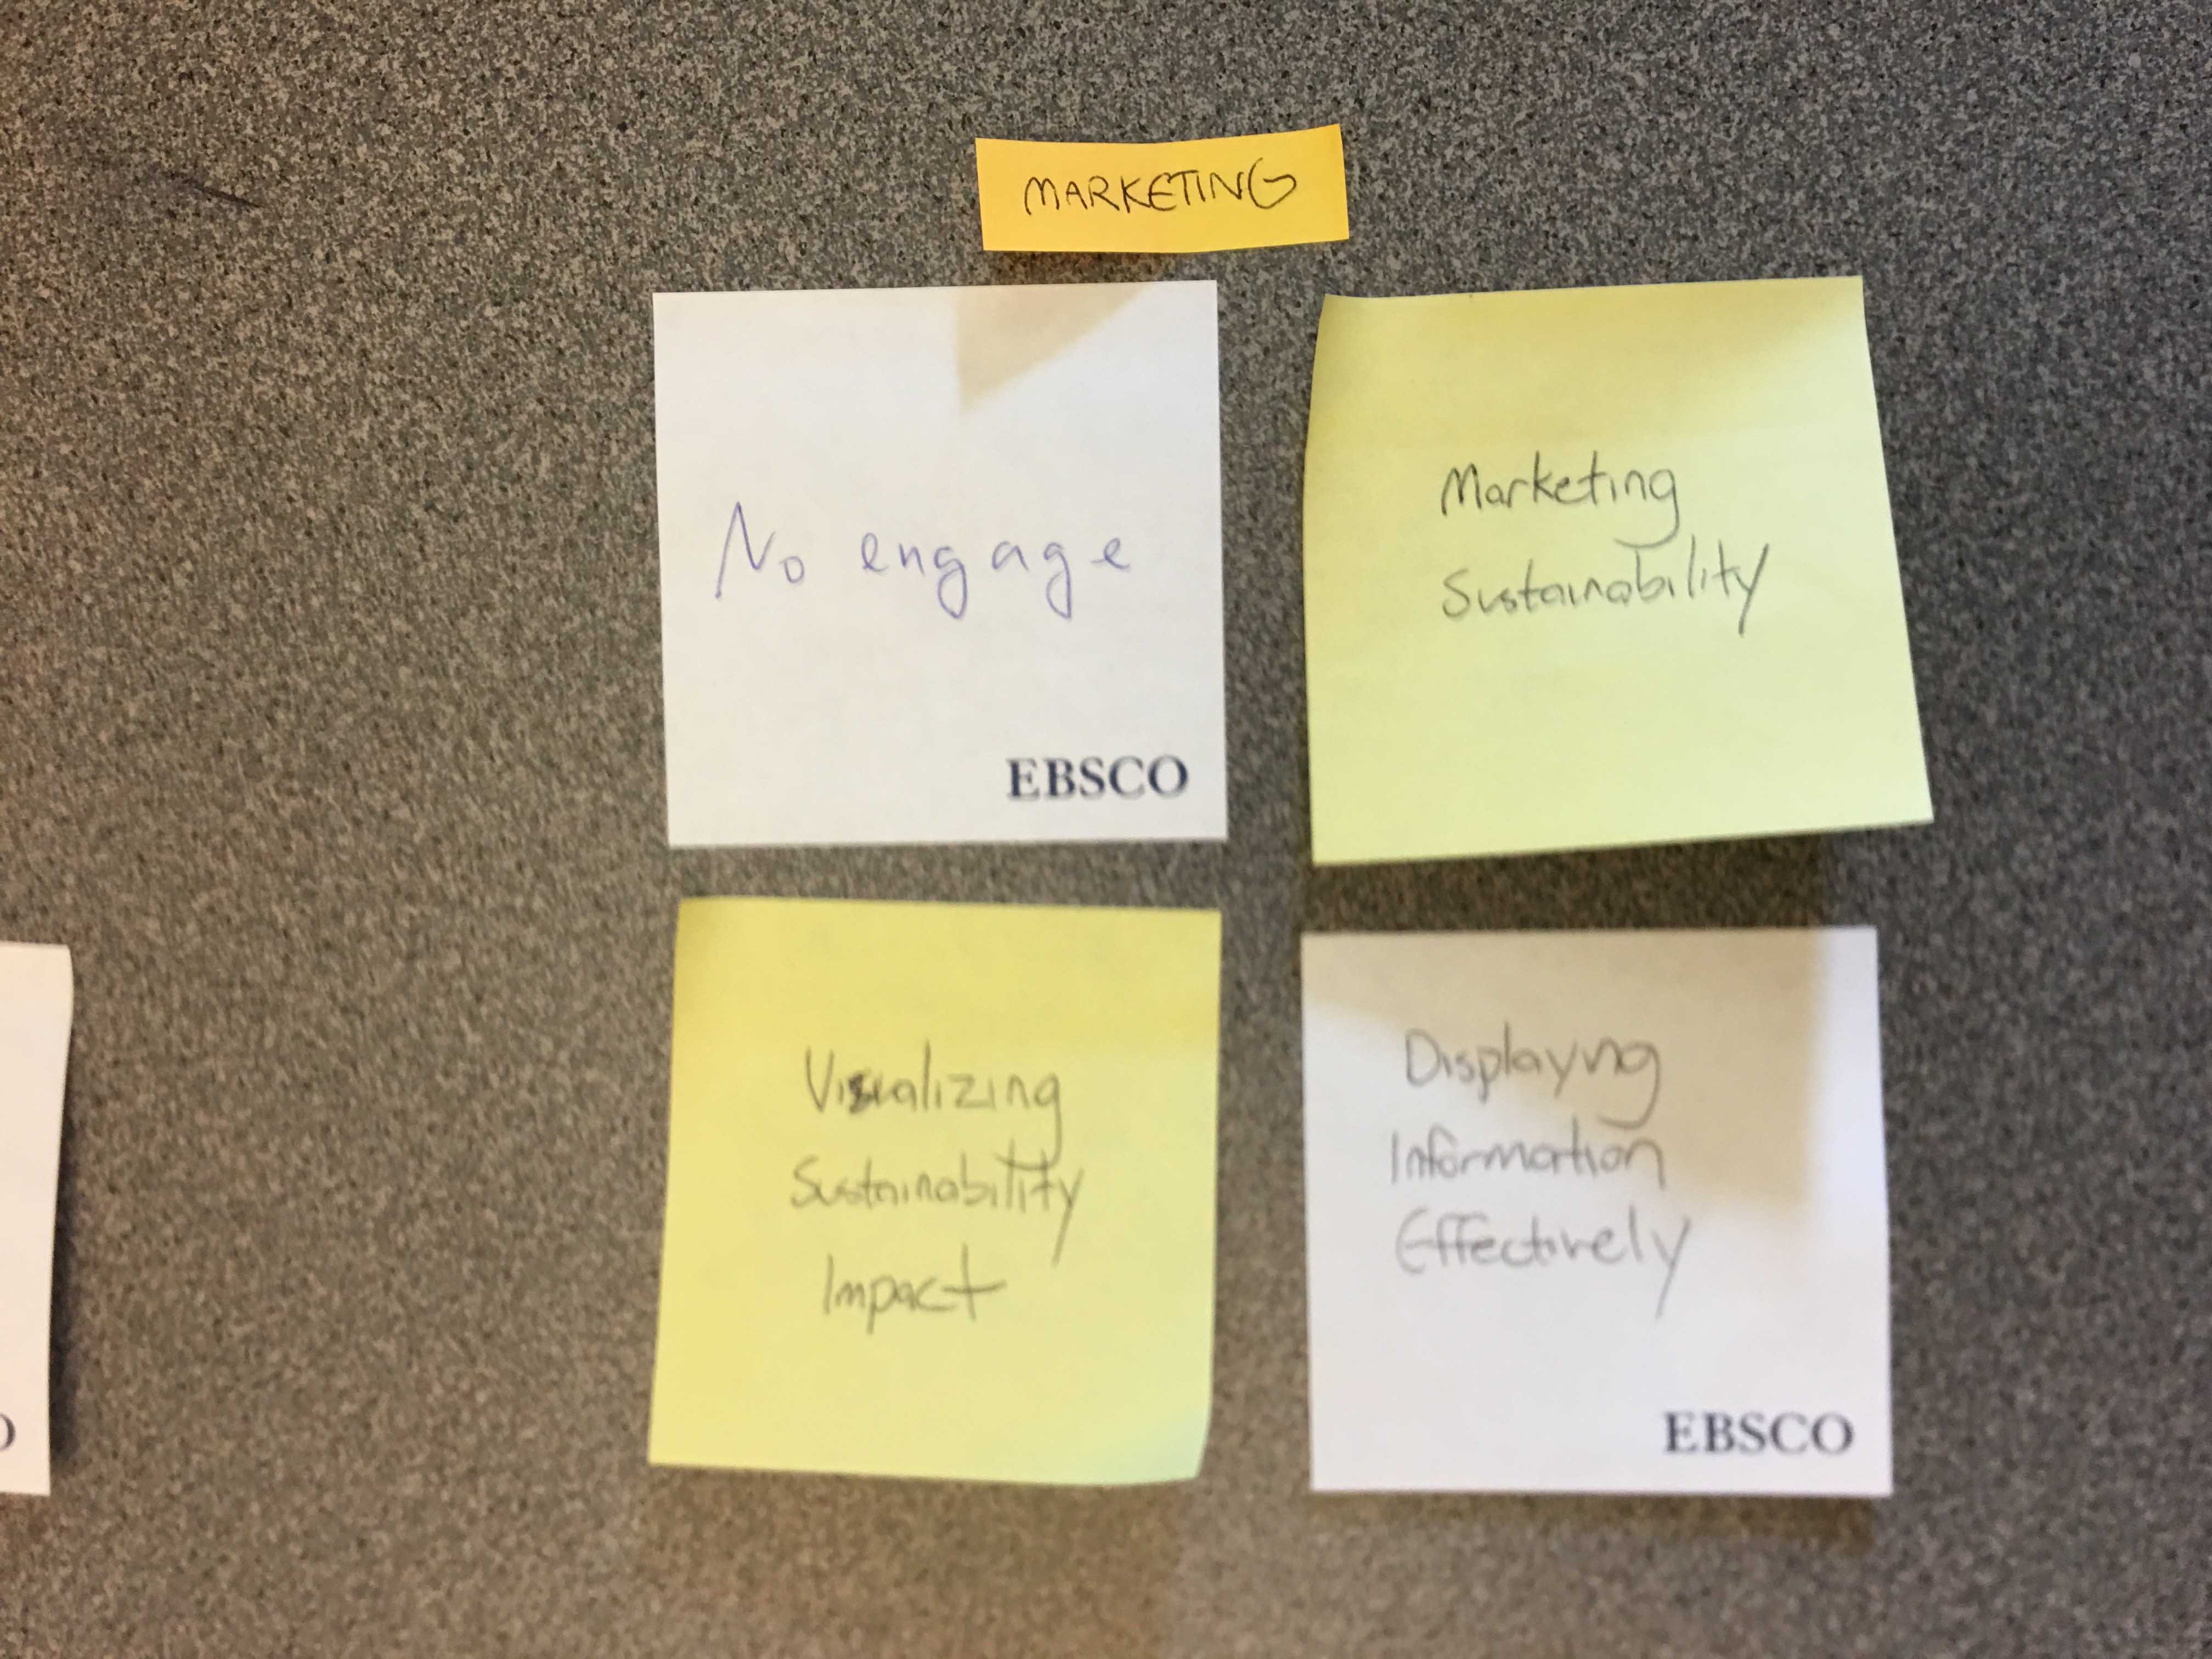 MARKETING
No engage
EBSCO
Marketing
Sustainability
Visualizing
Sustainability
Impact
Displaying
Information
Effectively
EBSCO